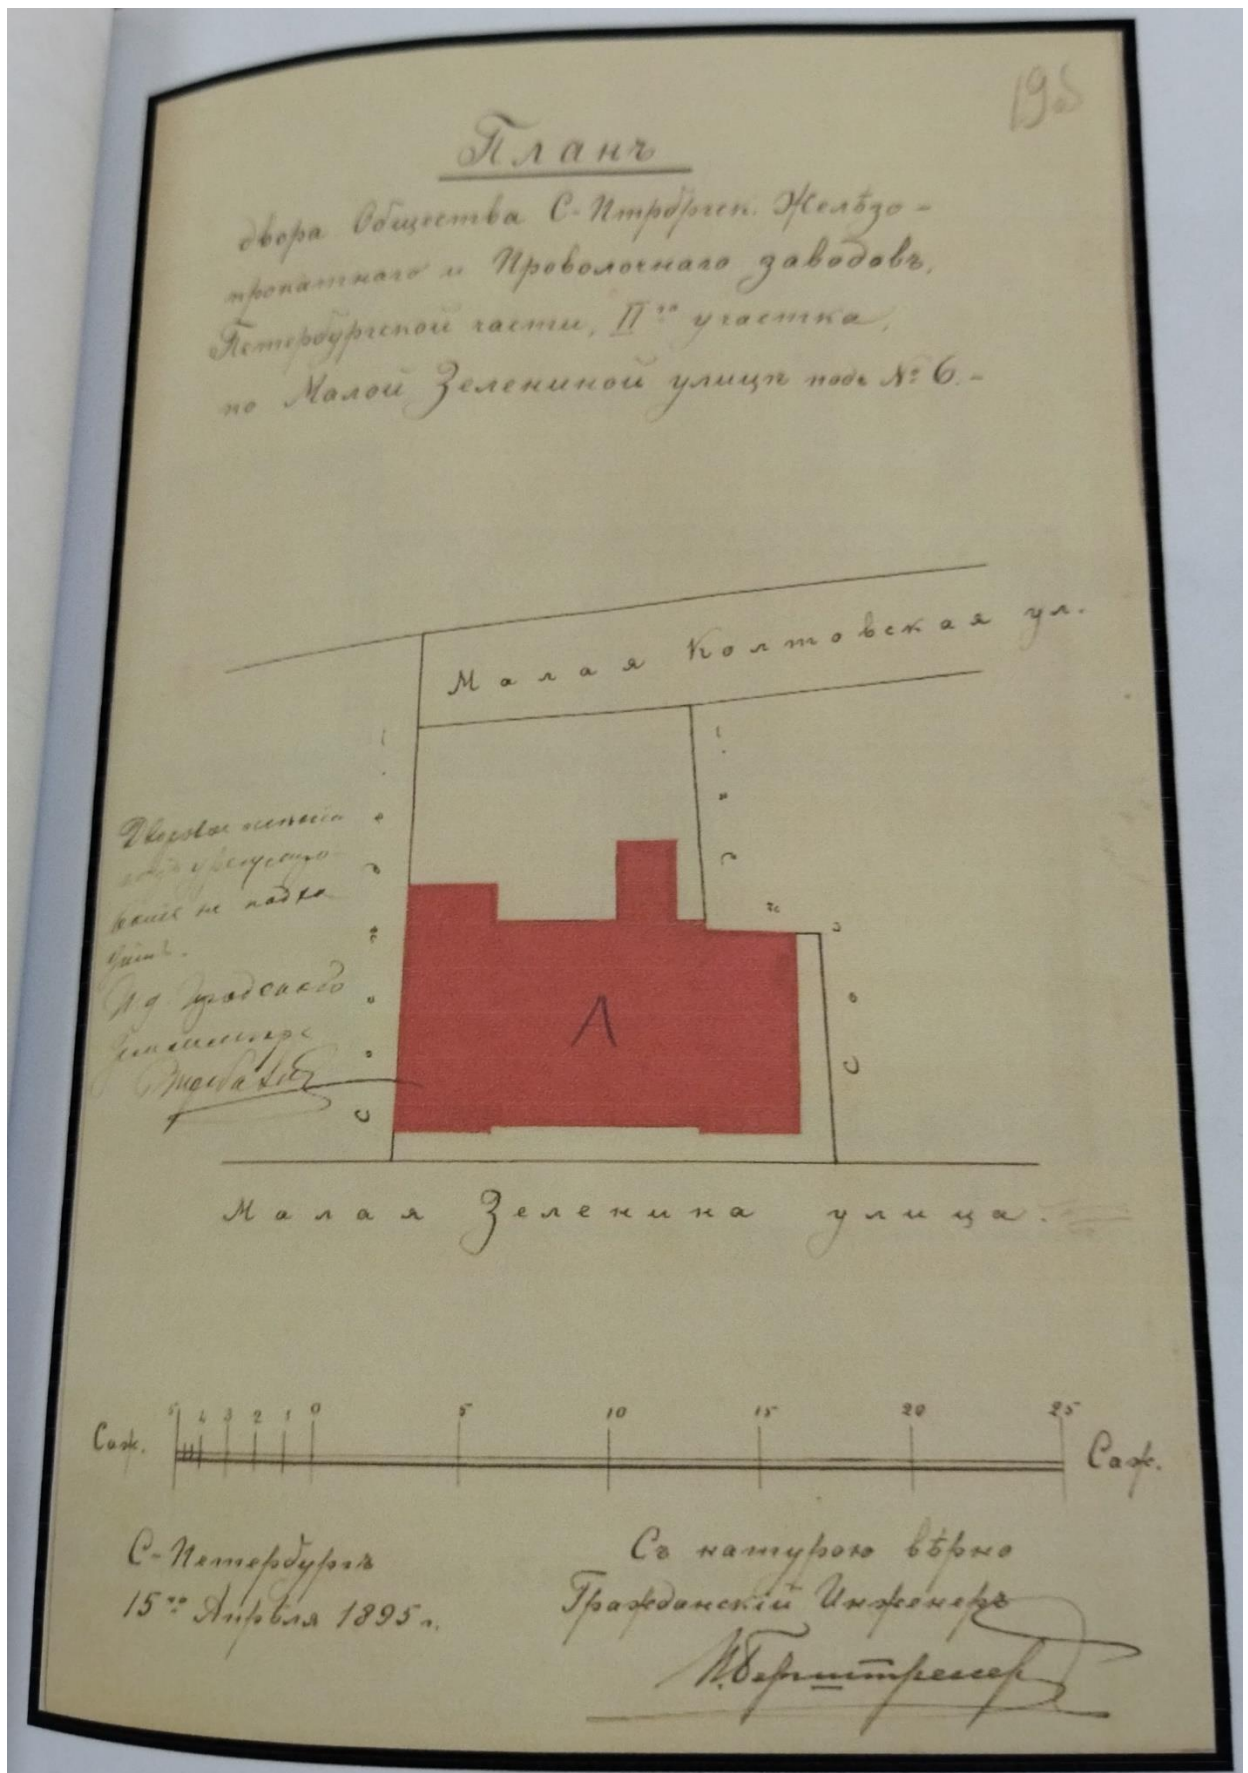 195
Планъ
двора Общества С-Птрбргск. Желѣзо-
прокатнаго и Проволочнаго заводовъ,
Петербургской части, IIго участка,
по Малой Зелениной улицѣ подъ № 6.-
Малая Колтовская ул.
Дворовое
не подхо
дитъ.
И д Городского
Сосѣдн.
Сосѣдн.
Л
Малая Зеленина улица.
Саж. 5 4 3 2 1 0 5 10 15 20 25 Саж.
С-Петербургъ
15го Апрѣля 1895 г.
Съ натурою вѣрно
Гражданскій Инженеръ